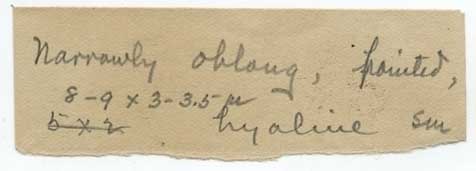 Narrowly oblong, pointed,
8-9 x 3-3.5 µ
5 x 2 hyaline sm